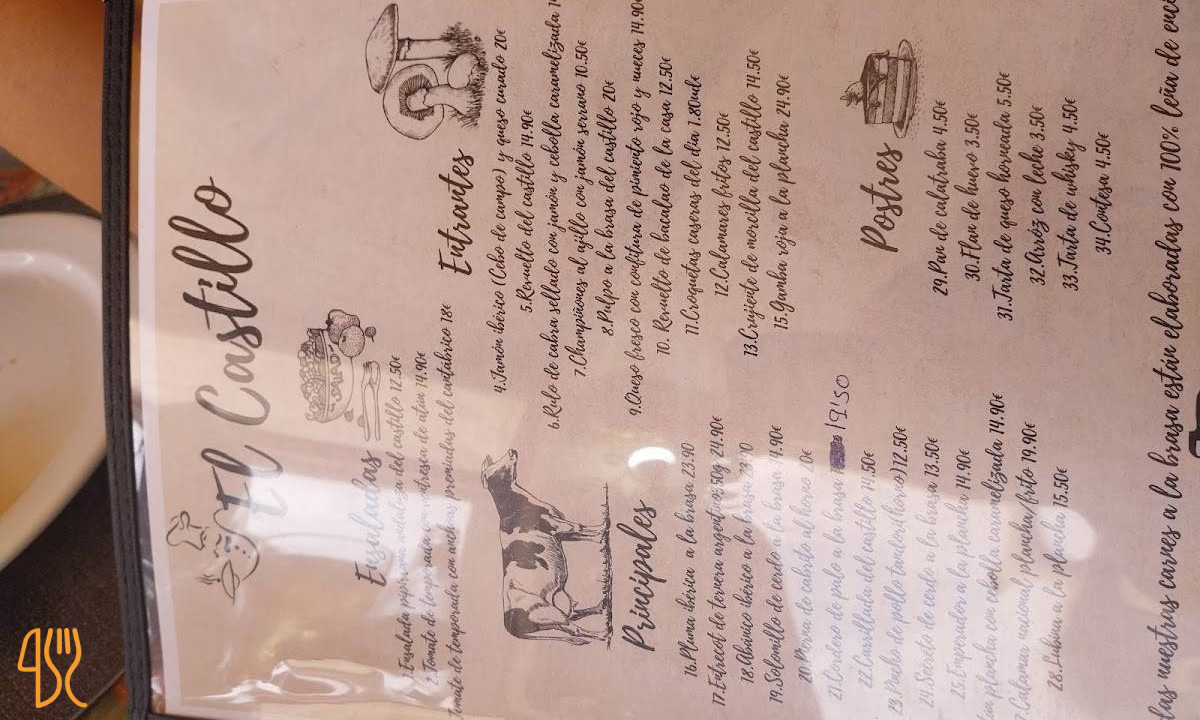 El Castillo
Ensaladas
1.Ensalada del castillo 12.50€
2.Tomate de temporada con ventresca de atún 14.90€
Tomate de temporada con anchoas premiadas del cantábrico 18€
Entrantes
4.Jamón ibérico (Cebo de campo) y queso curado 20€
5.Revuelto del castillo 14.90€
6.Rulo de cabra sellado con jamón y cebolla caramelizada
7.Champiñones al ajillo con jamón serrano 10.50€
8.Pulpo a la brasa del castillo 20€
9.Queso fresco con confitura de pimiento rojo y nueces 14.90
10. Revuelto de bacalao de la casa 12.50€
11.Croquetas caseras del día 1.80ud€
12.Calamares fritos 12.50€
13.Crujiente de morcilla del castillo 14.50€
15.Gamba roja a la plancha 24.90€
Principales
16.Pluma ibérica a la brasa 23.90
17.Entrecot de ternera argentina 24.90€
18.Abánico ibérico a la brasa
19.Solomillo de cerdo a la brasa
20. de cabrito al horno 20€
21.Cordero de palo a la brasa 19'50
22.Carrillada del castillo 14.50€
23. de pollo tandori 12.50€
24.Secreto de cerdo a la brasa 13.50€
25.Emperador a la plancha 14.90€
plancha con cebolla caramelizada 14.90€
Calamar nacional plancha/frito 19.90€
28.Lubina a la plancha 15.50€
Postres
29.Pan de calatraba 4.50€
30.Flan de huevo 3.50€
31.Tarta de queso horneada 5.50€
32.Arróz con leche 3.50€
33.Tarta de whisky 4.50€
34.Contesa 4.50€
las nuestras carnes a la brasa están elaboradas con 100% leña de